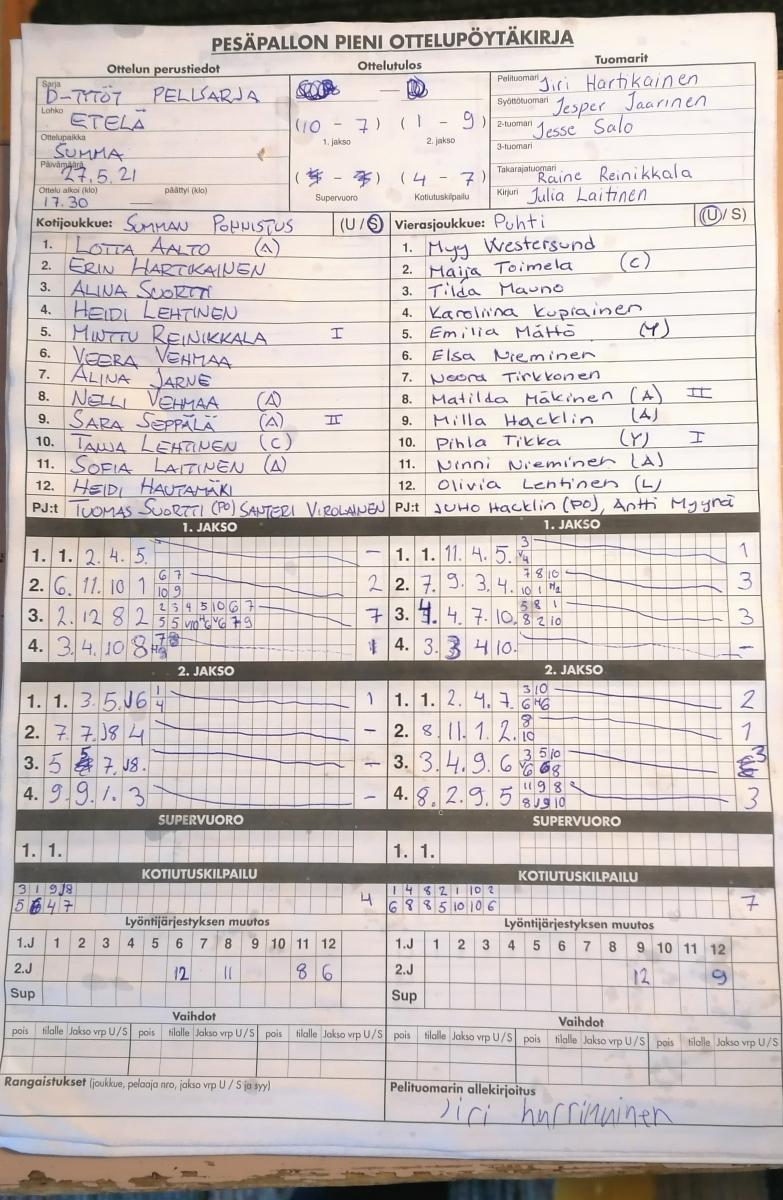 PESÄPALLON PIENI OTTELUPÖYTÄKIRJA
Ottelun perustiedot
Ottelutulos
Tuomarit
Sarja D-TYTÖT PELLSARJA
Lohko ETELÄ
Ottelupaikka SUMMA
Päivämäärä 27.5.21
Ottelu alkoi (klo) päättyi (klo)
17.30 —
(10 - 7) (1 - 9)
1. jakso 2. jakso
(4 - 7)
Supervuoro Kotiutuskilpailu
Pelituomari Jiri Hartikainen
Syöttötuomari Jesper Jaarinen
2-tuomari Jesse Salo
3-tuomari
Takarajatuomari Raine Reinikkala
Kirjuri Julia Laitinen
Kotijoukkue: SUMMAN PONNISTUS (U/S)
1. LOTTA AALTO (A)
2. ERIN HARTIKAINEN
3. ALINA SUORTTI
4. HEIDI LEHTINEN
5. MINTTU REINIKKALA I
6. VEERA VEHMAA
7. ALINA JARNE
8. NELLI VEHMAA (A)
9. SARA SEPPÄLÄ (A) II
10. TAIJA LEHTINEN (C)
11. SOFIA LAITINEN (A)
12. HEIDI HAUTAMÄKI
PJ:t TUOMAS SUORTTI (PO) SANTERI VIROLAINEN
Vierasjoukkue: Puhti (U/S)
1. Myy Westersund
2. Maija Toimela (C)
3. Tilda Mauno
4. Karoliina Kupiainen
5. Emilia Mättö (Y)
6. Elsa Nieminen
7. Noora Tirkkonen
8. Matilda Mäkinen (A) II
9. Milla Hacklin (A)
10. Pihla Tikka (Y) I
11. Ninni Nieminen (A)
12. Olivia Lehtinen (L)
PJ:t JUHO Hacklin (PO), Antti Myyrä
1. JAKSO
1. 1. 2. 4. 5. –
2. 6. 11. 10 1 6 7 2
10 9
3. 2. 12 8 2 2 3 4 5 10 6 7 7
4. 3. 4. 10 8 1
2. JAKSO
1. 1. 3. 5. J6 1 1
4
2. 7. 7. J8 4 –
3. 5 7. J8. –
4. 9. 9. 1. 3 –
SUPERVUORO
1. 1.
KOTIUTUSKILPAILU
3 1 9 J8
5 4 7 4
1. JAKSO
1. 1. 11. 4. 5. 3 1
V4
2. 7. 9. 3. 4. 7 8 10 3
10 1 H2
3. 4. 7. 10. 5 8 1 3
8 2 10
4. 3. 3 4 10. –
2. JAKSO
1. 1. 2. 4. 7. 3 10 2
6 H6
2. 8. 11. 1. 2. 8 1
10
3. 3. 4. 9. 6 3 5 10 3
V6 8
4. 8. 2. 9. 5 11 9 8 3
8 J9 10
SUPERVUORO
1. 1.
KOTIUTUSKILPAILU
1 4 8 2 1 10 2
6 8 8 5 10 10 6 7
Lyöntijärjestyksen muutos
1.J 1 2 3 4 5 6 7 8 9 10 11 12
2.J 12 11 8 6
Sup
Lyöntijärjestyksen muutos
1.J 1 2 3 4 5 6 7 8 9 10 11 12
2.J 12 9
Sup
Vaihdot
pois tilalle Jakso vrp U/S pois tilalle Jakso vrp U/S pois tilalle Jakso vrp U/S
Vaihdot
pois tilalle Jakso vrp U/S pois tilalle Jakso vrp U/S pois tilalle Jakso vrp U/S
Rangaistukset (joukkue, pelaaja nro, jakso vrp U / S ja syy)
Pelituomarin allekirjoitus
Jiri